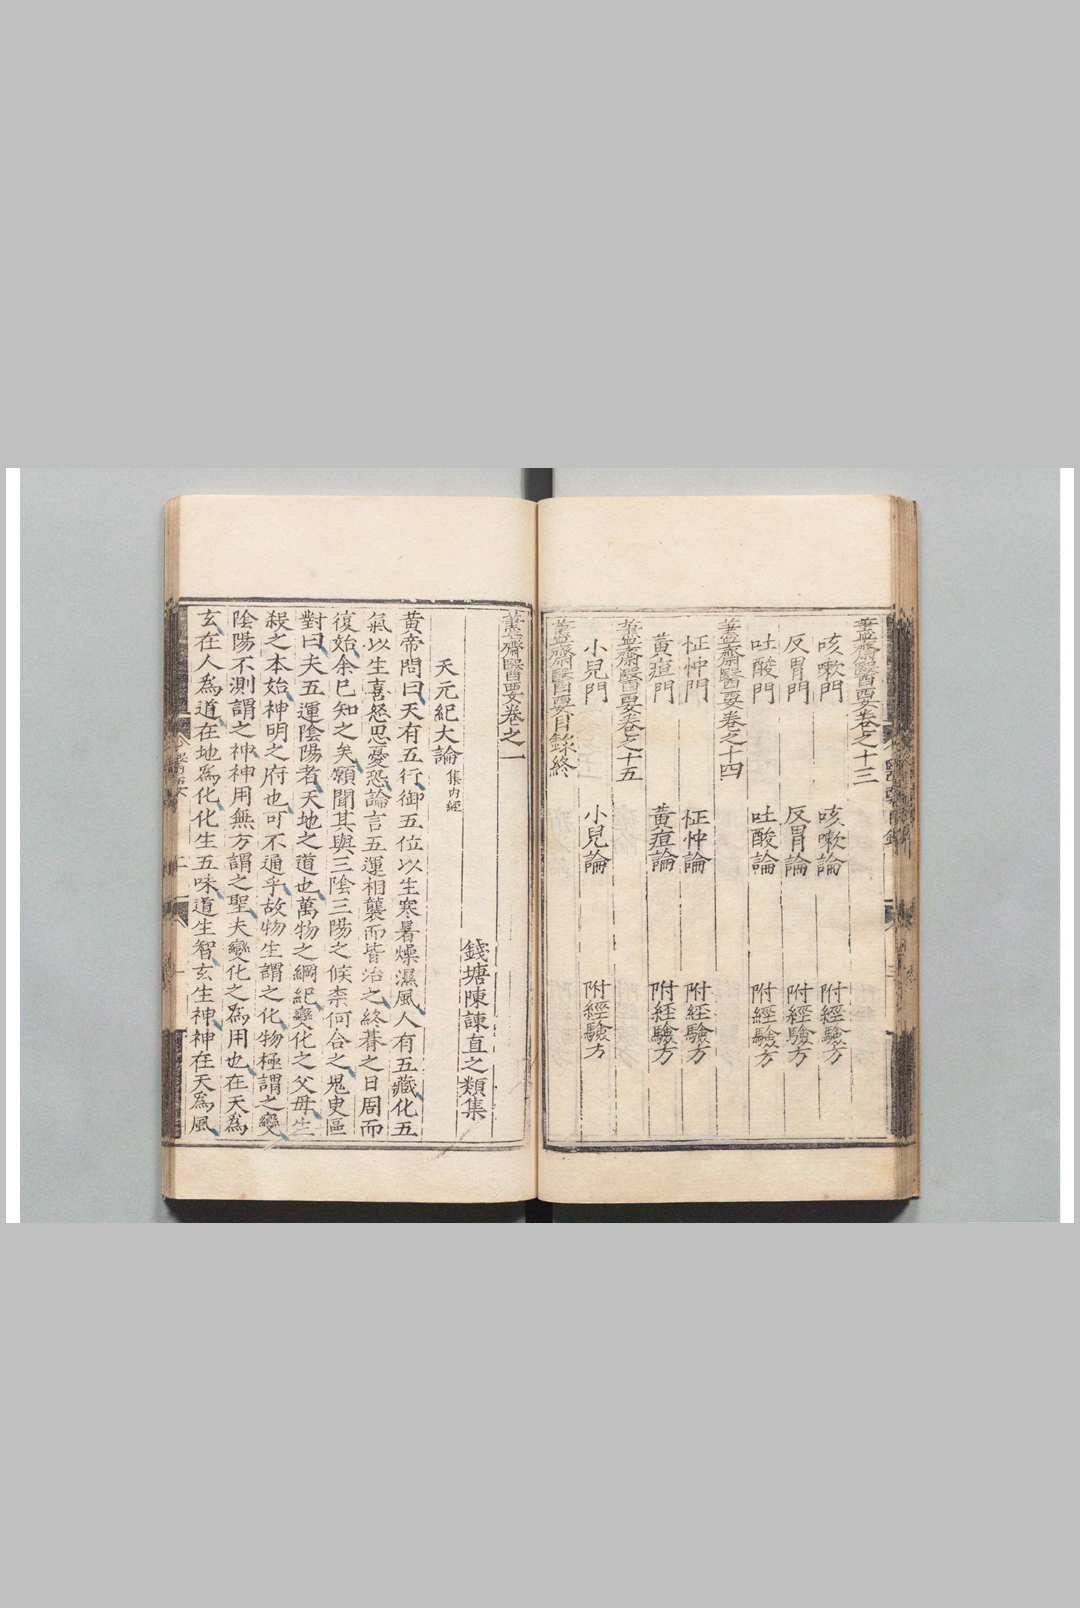 蓋齋醫要卷之十三
咳嗽門 咳嗽論 附經驗方
反胃門 反胃論 附經驗方
吐酸門 吐酸論 附經驗方
蓋齋醫要卷之十四
怔忡門 怔忡論 附經驗方
黃疸門 黃疸論 附經驗方
蓋齋醫要卷之十五
小兒門 小兒論 附經驗方
蓋齋醫要目錄終
蓋齋醫要卷之一
錢塘陳諫直之類集
天元紀大論集內經
黃帝問曰天有五行御五位以生寒暑燥濕風人有五藏化五
氣以生喜怒思憂恐論言五運相襲而皆治之終朞之日周而
復始余巳知之矣願聞其與三陰三陽之候柰何合之鬼臾區
對曰夫五運陰陽者天地之道也萬物之綱紀變化之父母生
殺之本始神明之府也可不通乎故物生謂之化物極謂之變
陰陽不測謂之神神用無方謂之聖夫變化之爲用也在天爲
玄在人爲道在地爲化化生五味道生智玄生神神在天爲風